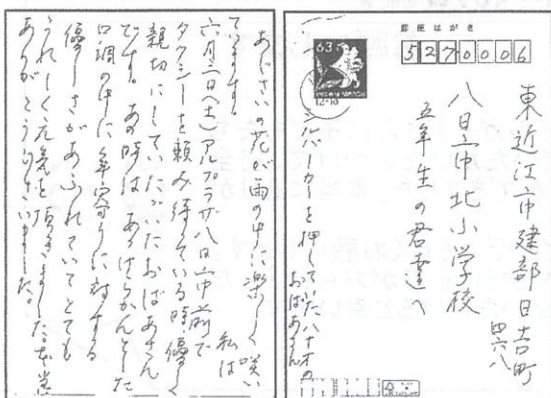 郵便はがき
5270006
東近江市建部日吉町
四六八
八日市北小学校
五年生の君達へ
シルバーカーを押していた八十才の
おばあさん
63
12-18
あじさいの花が雨の中に楽しく咲い
てます。
私は
六月三日(土)アルプラザ八日市前で
タクシーを頼み待っている時、優しく
親切にしていただいたおばあさん
です。あの時は、あっけらかんとした
口調の中に年寄りに対する
優しさがあふれていてとても
うれしく元気を頂きました。本当に
ありがとうございました。